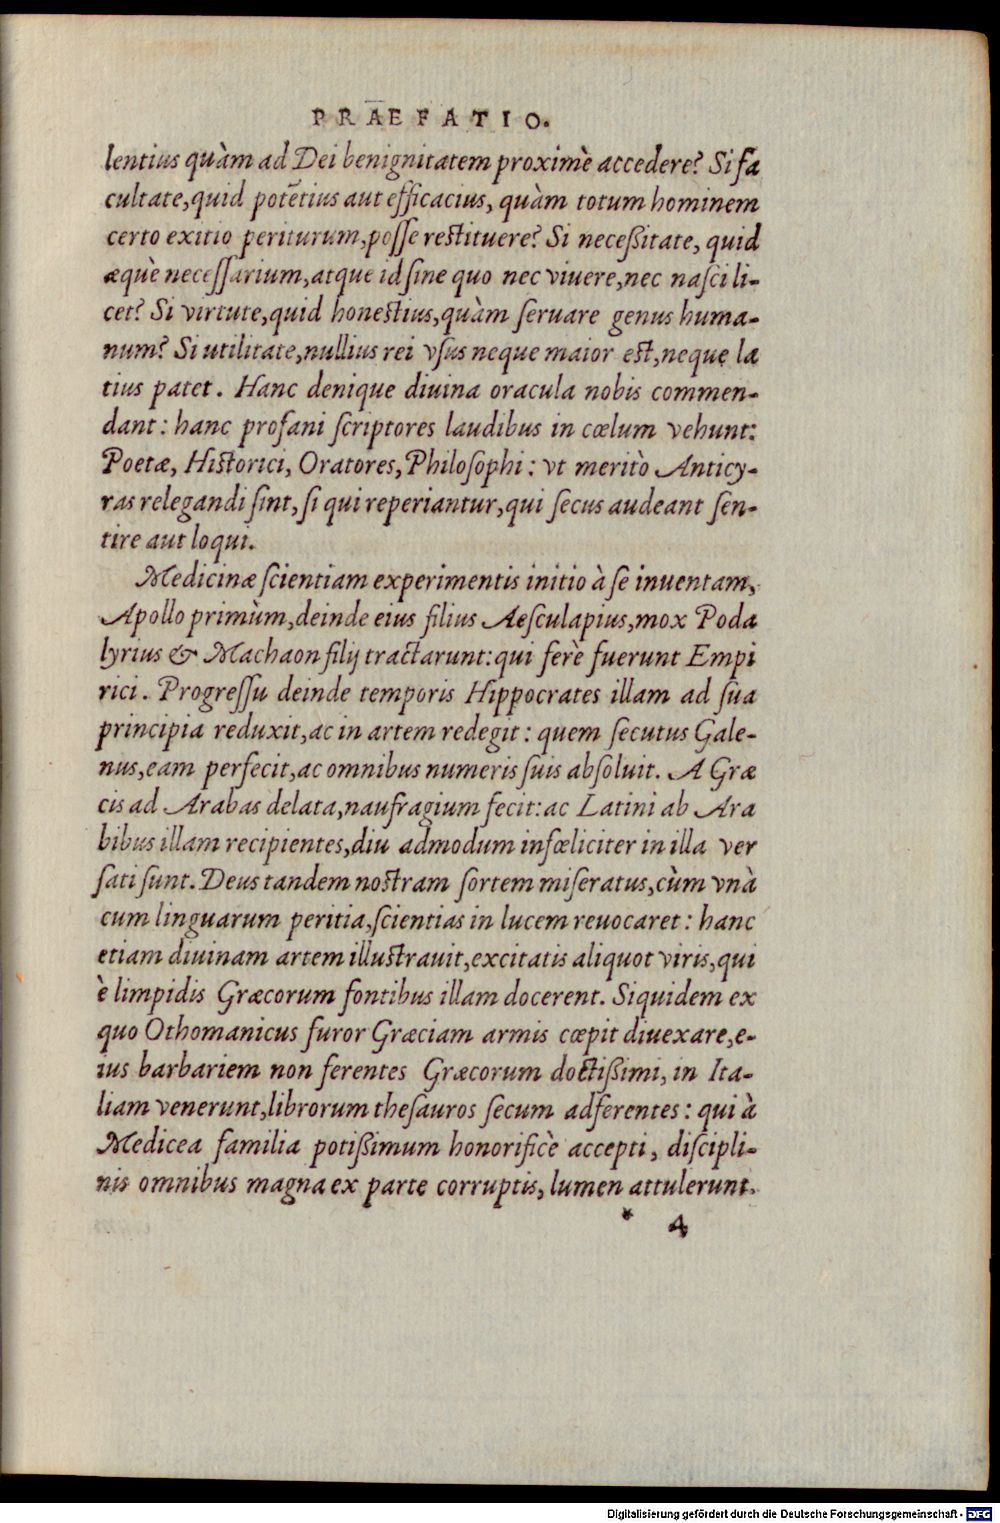 PRÆFATIO.
lentius quàm ad Dei benignitatem proximè accedere? Si fa
cultate, quid potẽtius aut efficacius, quàm totum hominem
certo exitio periturum, poſſe reſtituere? Si neceßitate, quid
æquè neceſſarium, atque id ſine quo nec viuere, nec naſci li-
cet? Si virtute, quid honeſtius, quàm ſeruare genus huma-
num? Si utilitate, nullius rei vſus neque maior eſt, neque la
tius patet. Hanc denique diuina oracula nobis commen-
dant: hanc profani ſcriptores laudibus in cœlum vehunt:
Poetæ, Hiſtorici, Oratores, Philoſophi: vt meritò Anticy-
ras relegandi ſint, ſi qui reperiantur, qui ſecus audeant ſen-
tire aut loqui.
Medicinæ ſcientiam experimentis initio à ſe inuentam,
Apollo primùm, deinde eius filius Aeſculapius, mox Poda
lyrius & Machaon filij tractarunt: qui ferè fuerunt Empi
rici. Progreſſu deinde temporis Hippocrates illam ad ſua
principia reduxit, ac in artem redegit: quem ſecutus Gale-
nus, eam perfecit, ac omnibus numeris ſuis abſoluit. A Græ
cis ad Arabas delata, naufragium fecit: ac Latini ab Ara
bibus illam recipientes, diu admodum infœliciter in illa ver
ſati ſunt. Deus tandem noſtram ſortem miſeratus, cùm vnà
cum linguarum peritia, ſcientias in lucem reuocaret: hanc
etiam diuinam artem illuſtrauit, excitatis aliquot viris, qui
è limpidis Græcorum fontibus illam docerent. Siquidem ex
quo Othomanicus furor Græciam armis cœpit diuexare, e-
ius barbariem non ferentes Græcorum doctißimi, in Ita-
liam venerunt, librorum theſauros ſecum adferentes: qui à
Medicea familia potißimum honorificè accepti, diſcipli-
nis omnibus magna ex parte corruptis, lumen attulerunt.
* 4
Digitalisierung gefördert durch die Deutsche Forschungsgemeinschaft - DFG